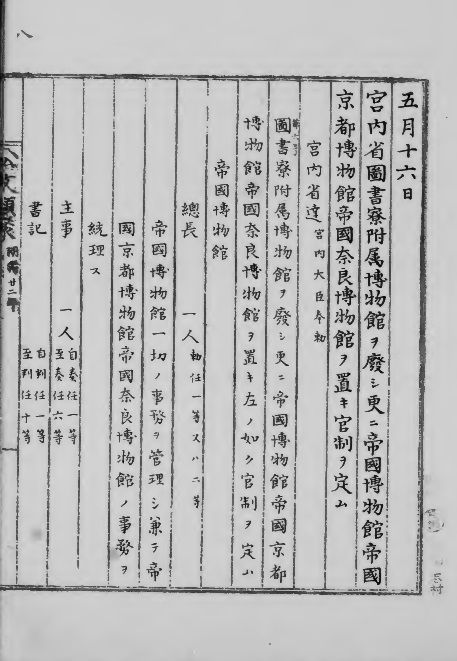 八
五月十六日
宮内省圖書寮附属博物館ヲ廢シ更ニ帝國博物館帝國
京都博物館帝國奈良博物館ヲ置キ官制ヲ定ム
宮内省達 宮内大臣奉勅
圖書寮附属博物館ヲ廢シ更ニ帝國博物館帝國京都
博物館帝國奈良博物館ヲ置キ左ノ如ク官制ヲ定ム
帝國博物館
總長 一人 勅任一等又ハ二等
帝國博物館一切ノ事務ヲ管理シ兼テ帝
國京都博物館帝國奈良博物館ノ事務ヲ
統理ス
主事 一人 自奏任一等 至奏任六等
書記 自判任一等 至判任十等